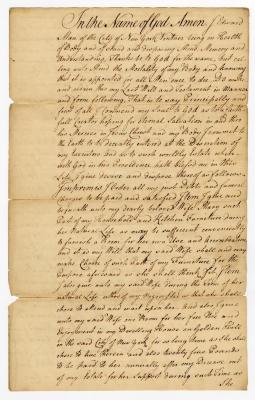 In the Name of God Amen, I Edward
Man of the City of New York Vintner being in Health
of Body and of Sound and disposing Mind, Memory and
Understanding, Thanks be to God for the same, but cal-
ling unto Mind the Mortality of my Body and knowing
that it is appointed for all Men once to Die. Do make
and ordain this my Last Will and Testament in Manner
and form following, That is to say Principally and
first of all I commend my Soul to God as a
Creator hoping for Eternal Salvation in and thro'
his Merits in Jesus Christ and my Body I commit to
the Earth to be decently interred at the Discretion of
my Executors and as to such worldly Estate which
with God in his Providence hath blessed me in this
Life, I give devise and dispose thereof as follows.
Imprimis I order all my just Debts and funeral
Charges to be paid and satisfied Item I give and
bequeath unto my dearly beloved Wife Mary such
Part of my Household and Kitchen Furniture during
her Natural Life as may be sufficient conveniently
to furnish a Room for her own Use and Accommodation
and it is my Will that my said Wife shall and may
make Choice of such Part of my Furniture for the
Purpose aforesaid as she shall think fit, Item
I also give unto my said Wife during the Term of her
natural Life which of my Negroes as that she shall
chose to attend and wait upon her. And also I give
unto my said Wife one Room for her free Use and
Enjoyment in my Dwelling House in Golden Hill
in the said City of New York for as long time as She shall
chose to live therein and also twenty five Pounds
to be paid to her annually after my Decease out
of my Estate for her Support during such time as
She